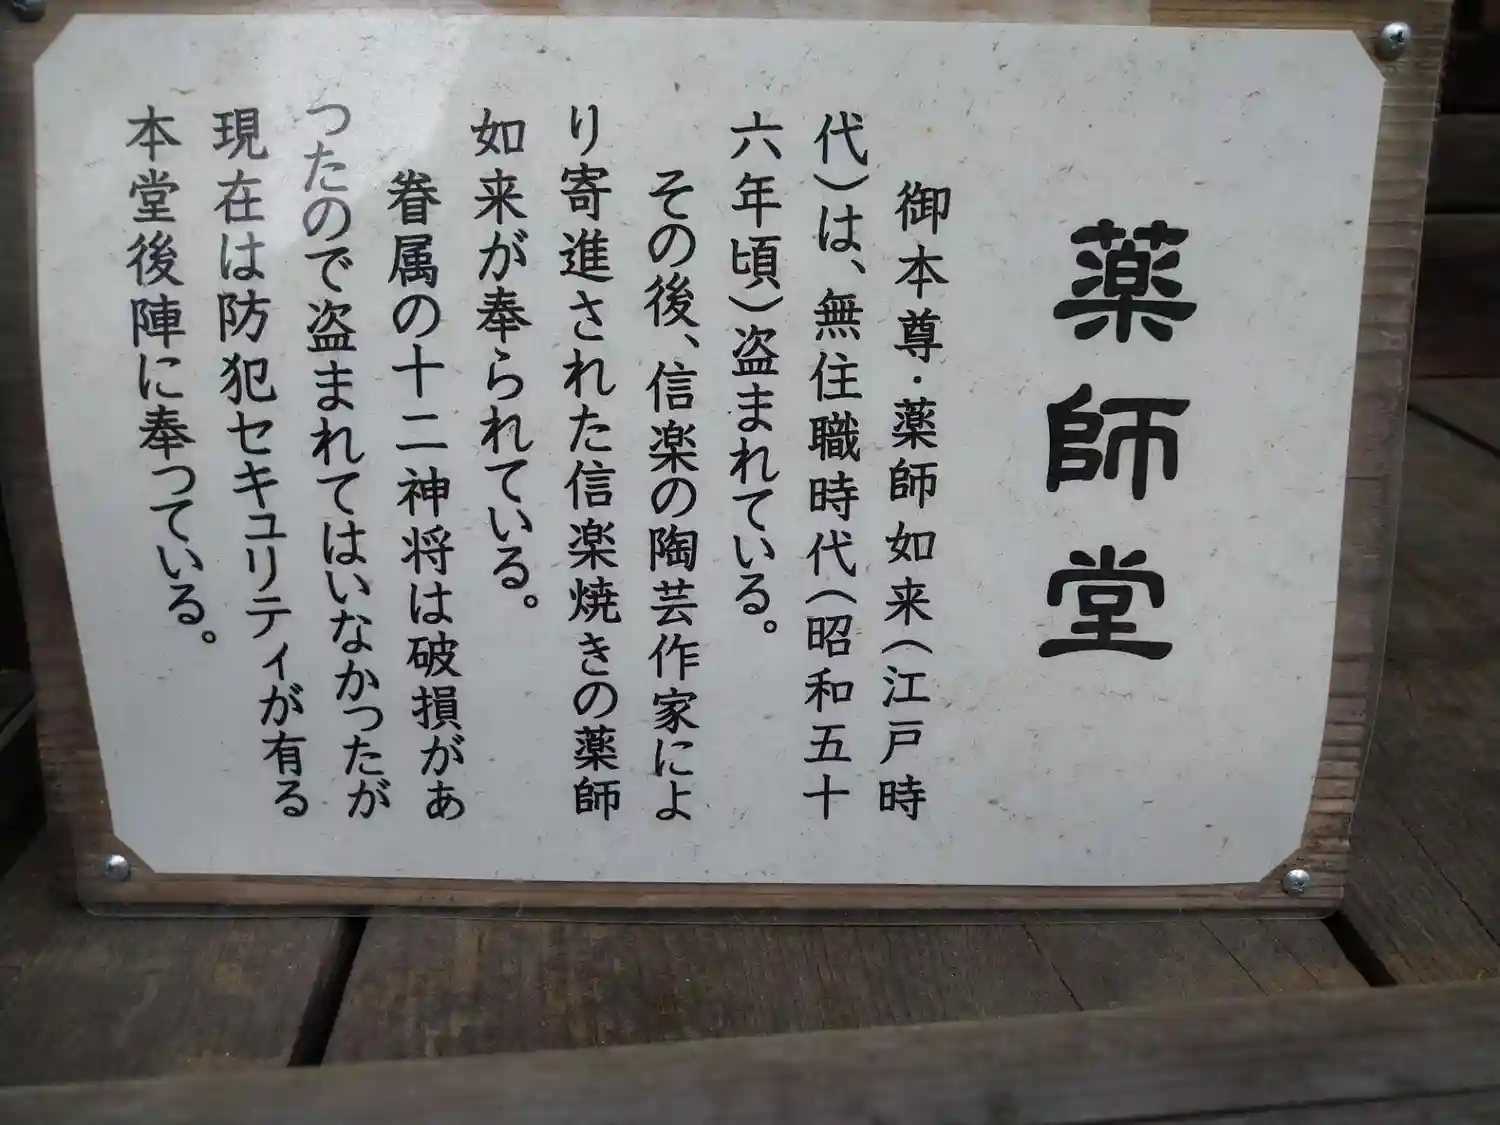 薬師堂
御本尊・薬師如来（江戸時
代）は、無住職時代（昭和五十
六年頃）盗まれている。
その後、信楽の陶芸作家によ
り寄進された信楽焼きの薬師
如来が奉られている。
眷属の十二神将は破損があ
つたので盗まれてはいなかつたが
現在は防犯セキュリティが有る
本堂後陣に奉つている。